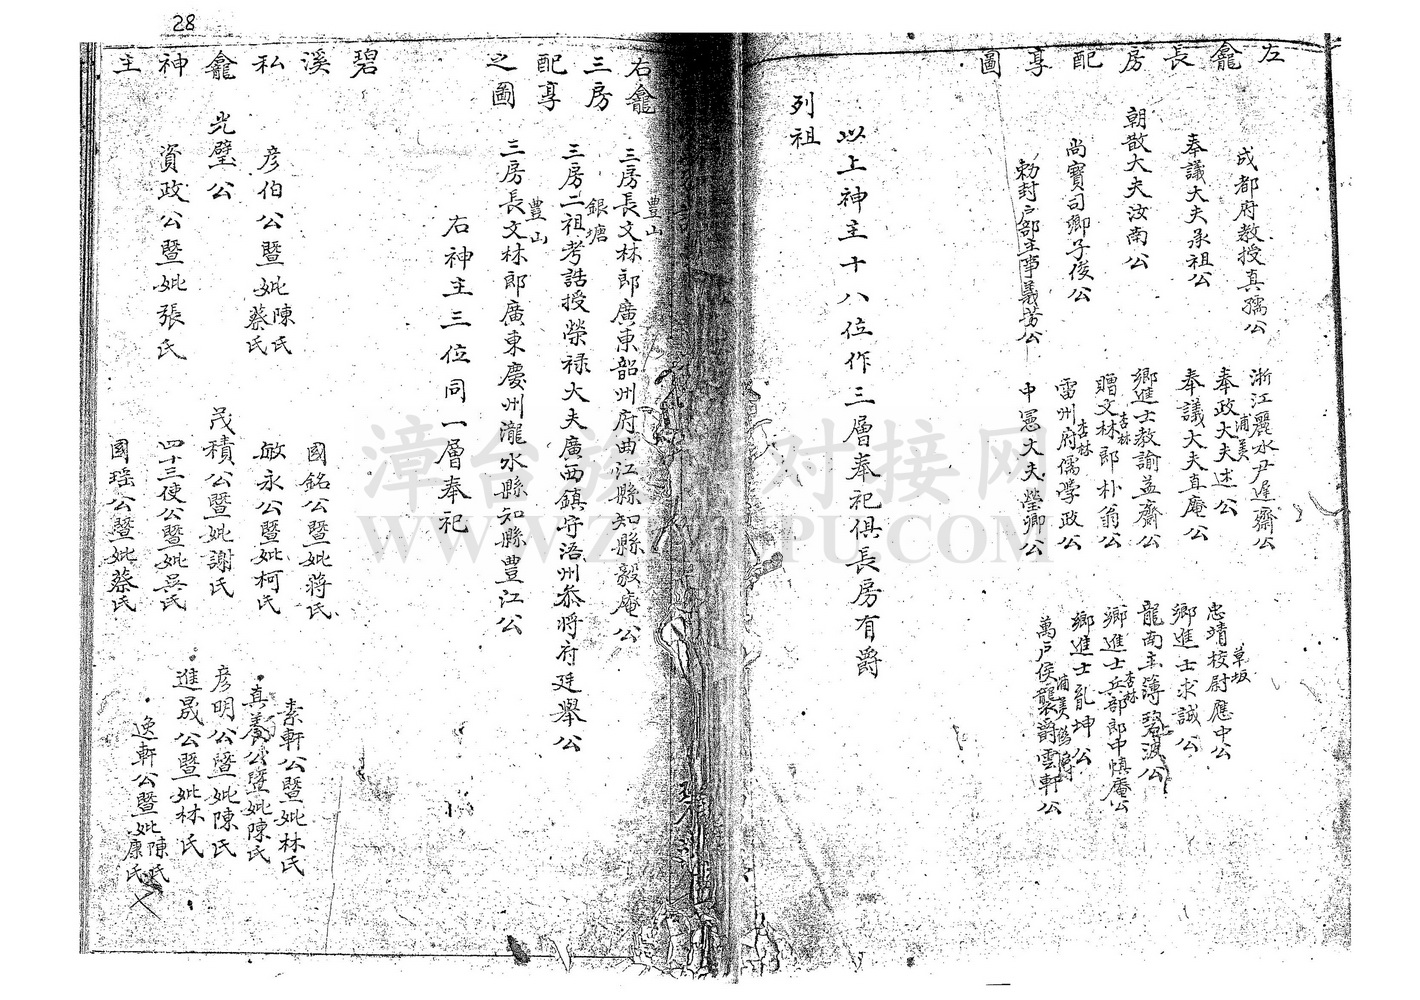 28
左龕長房配享圖
成都府教授真孺公
奉議大夫承祖公
朝散大夫汝南公
尚寶司卿子俊公
勅封戶部主事義芳公
浙江麗水尹遲齋公
奉政大夫述公
浦美
奉議大夫直庵公
鄉進士教諭益齋公
杏林
贈文林郎朴翁公
杏林
雷州府儒學政公
中憲大夫瑩卿公
草坂
忠靖校尉應中公
鄉進士求誠公
龍南主簿碧波公
杏林
鄉進士兵部郎中慎庵公
鄉進士乾坤公
浦美
萬戶侯襲爵雲軒公
以上神主十八位作三層奉祀俱長房有爵
列祖
右龕三房配享之圖
豊山
三房長文林郎廣東韶州府曲江縣知縣毅庵公
銀塘
三房二祖考誥授榮祿大夫廣西鎮守浯州叅將府廷舉公
豊山
三房長文林郎廣東慶州瀧水縣知縣豊江公
右神主三位同一層奉祀
碧溪私龕神主
彦伯公暨妣陳氏蔡氏
光璧公
資政公暨妣張氏
國銘公暨妣蔣氏
敏永公暨妣柯氏
茂積公暨妣謝氏
四十三使公暨妣吳氏
國瑶公暨妣蔡氏
素軒公暨妣林氏
真養公暨妣陳氏
彦明公暨妣陳氏
進晟公暨妣林氏
逸軒公暨妣陳氏康氏
漳台族谱对接网